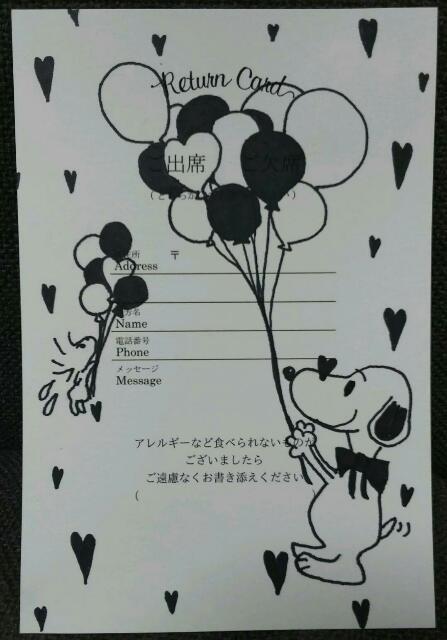 Return Card
ご出席 ご欠席
住所 〒
Address
Name
電話番号
Phone
メッセージ
Message
アレルギーなど食べられないものが
ございましたら
ご遠慮なくお書き添えください
(